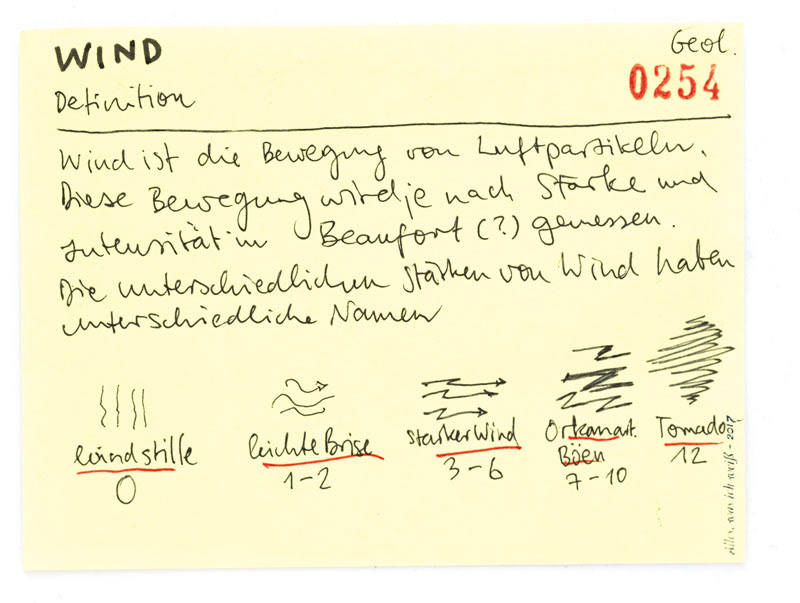 WIND
Geol.
0254
Definition
Wind ist die Bewegung von Luftpartikeln.
Diese Bewegung wird je nach Stärke und
Intensität in Beaufort (?) gemessen.
Die unterschiedlichen Stärken von Wind haben
unterschiedliche Namen
Windstille
0
leichte Brise
1-2
starker Wind
3-6
Orkanart.
Böen
7-10
Tornado
12
Alles, was ich weiß - 2017